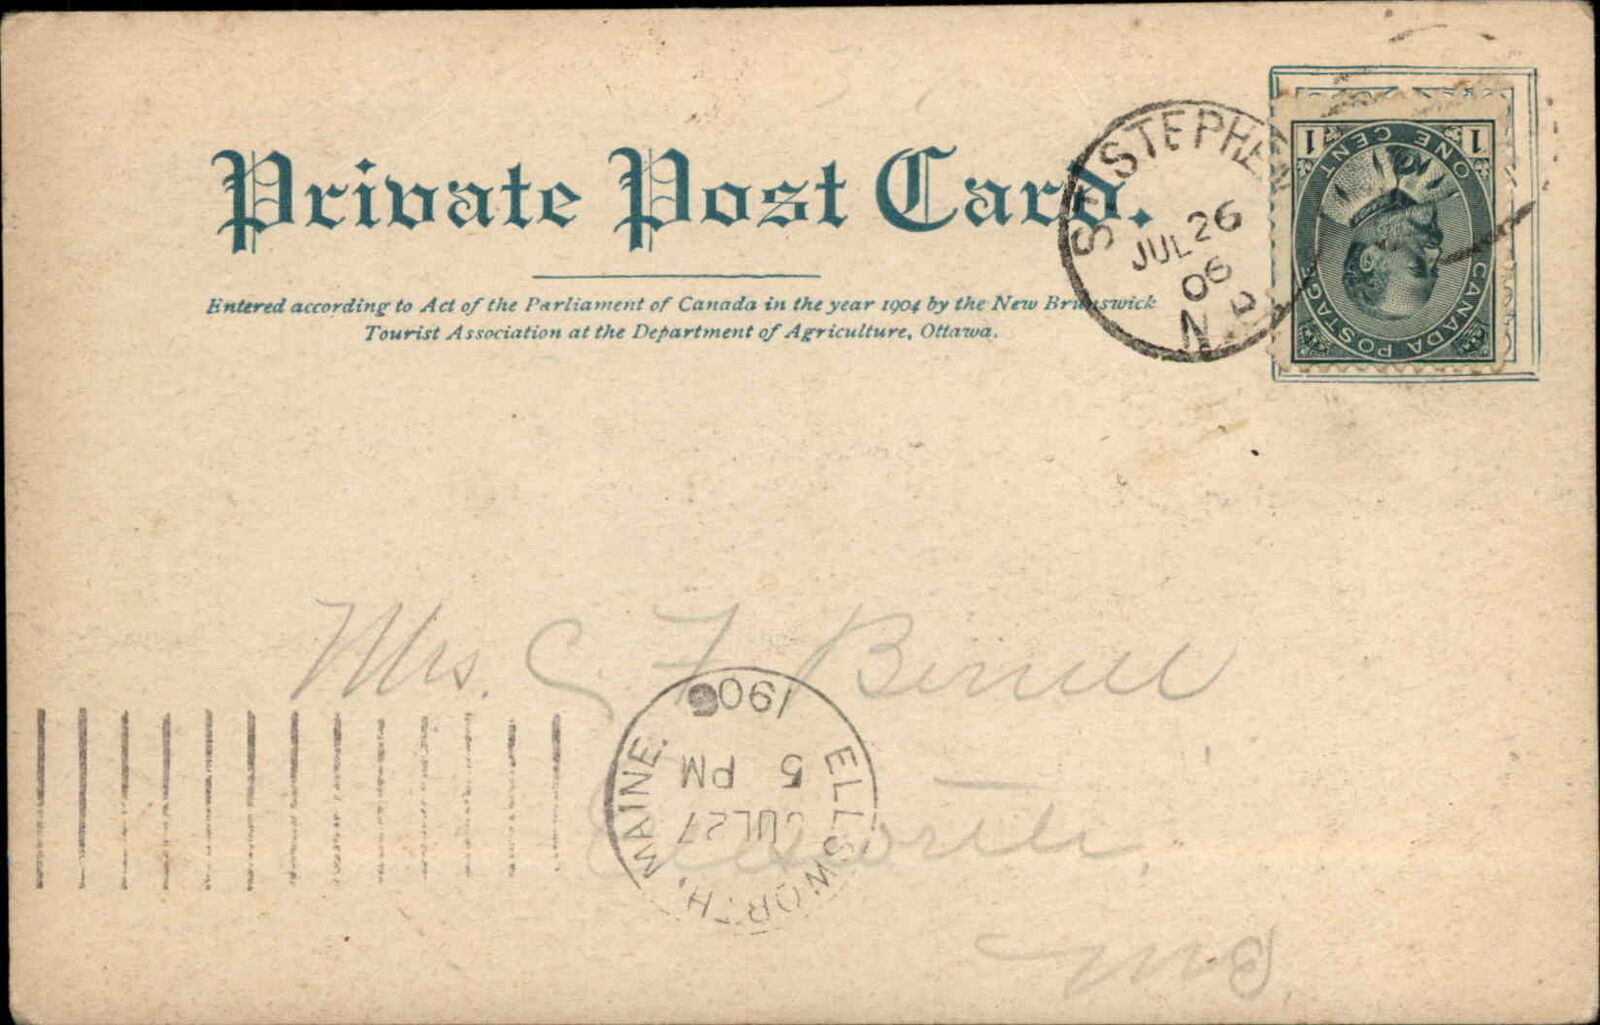 Private Post Card.
Entered according to Act of the Parliament of Canada in the year 1904 by the New Brunswick
Tourist Association at the Department of Agriculture, Ottawa.
ST. STEPHEN
JUL 26
06
N.B
1 ONE CENT 1
CANADA POSTAGE
Mrs. C. F.
Ellsworth,
Me.
ELLSWORTH, MAINE.
JUL 27
5 PM
1906